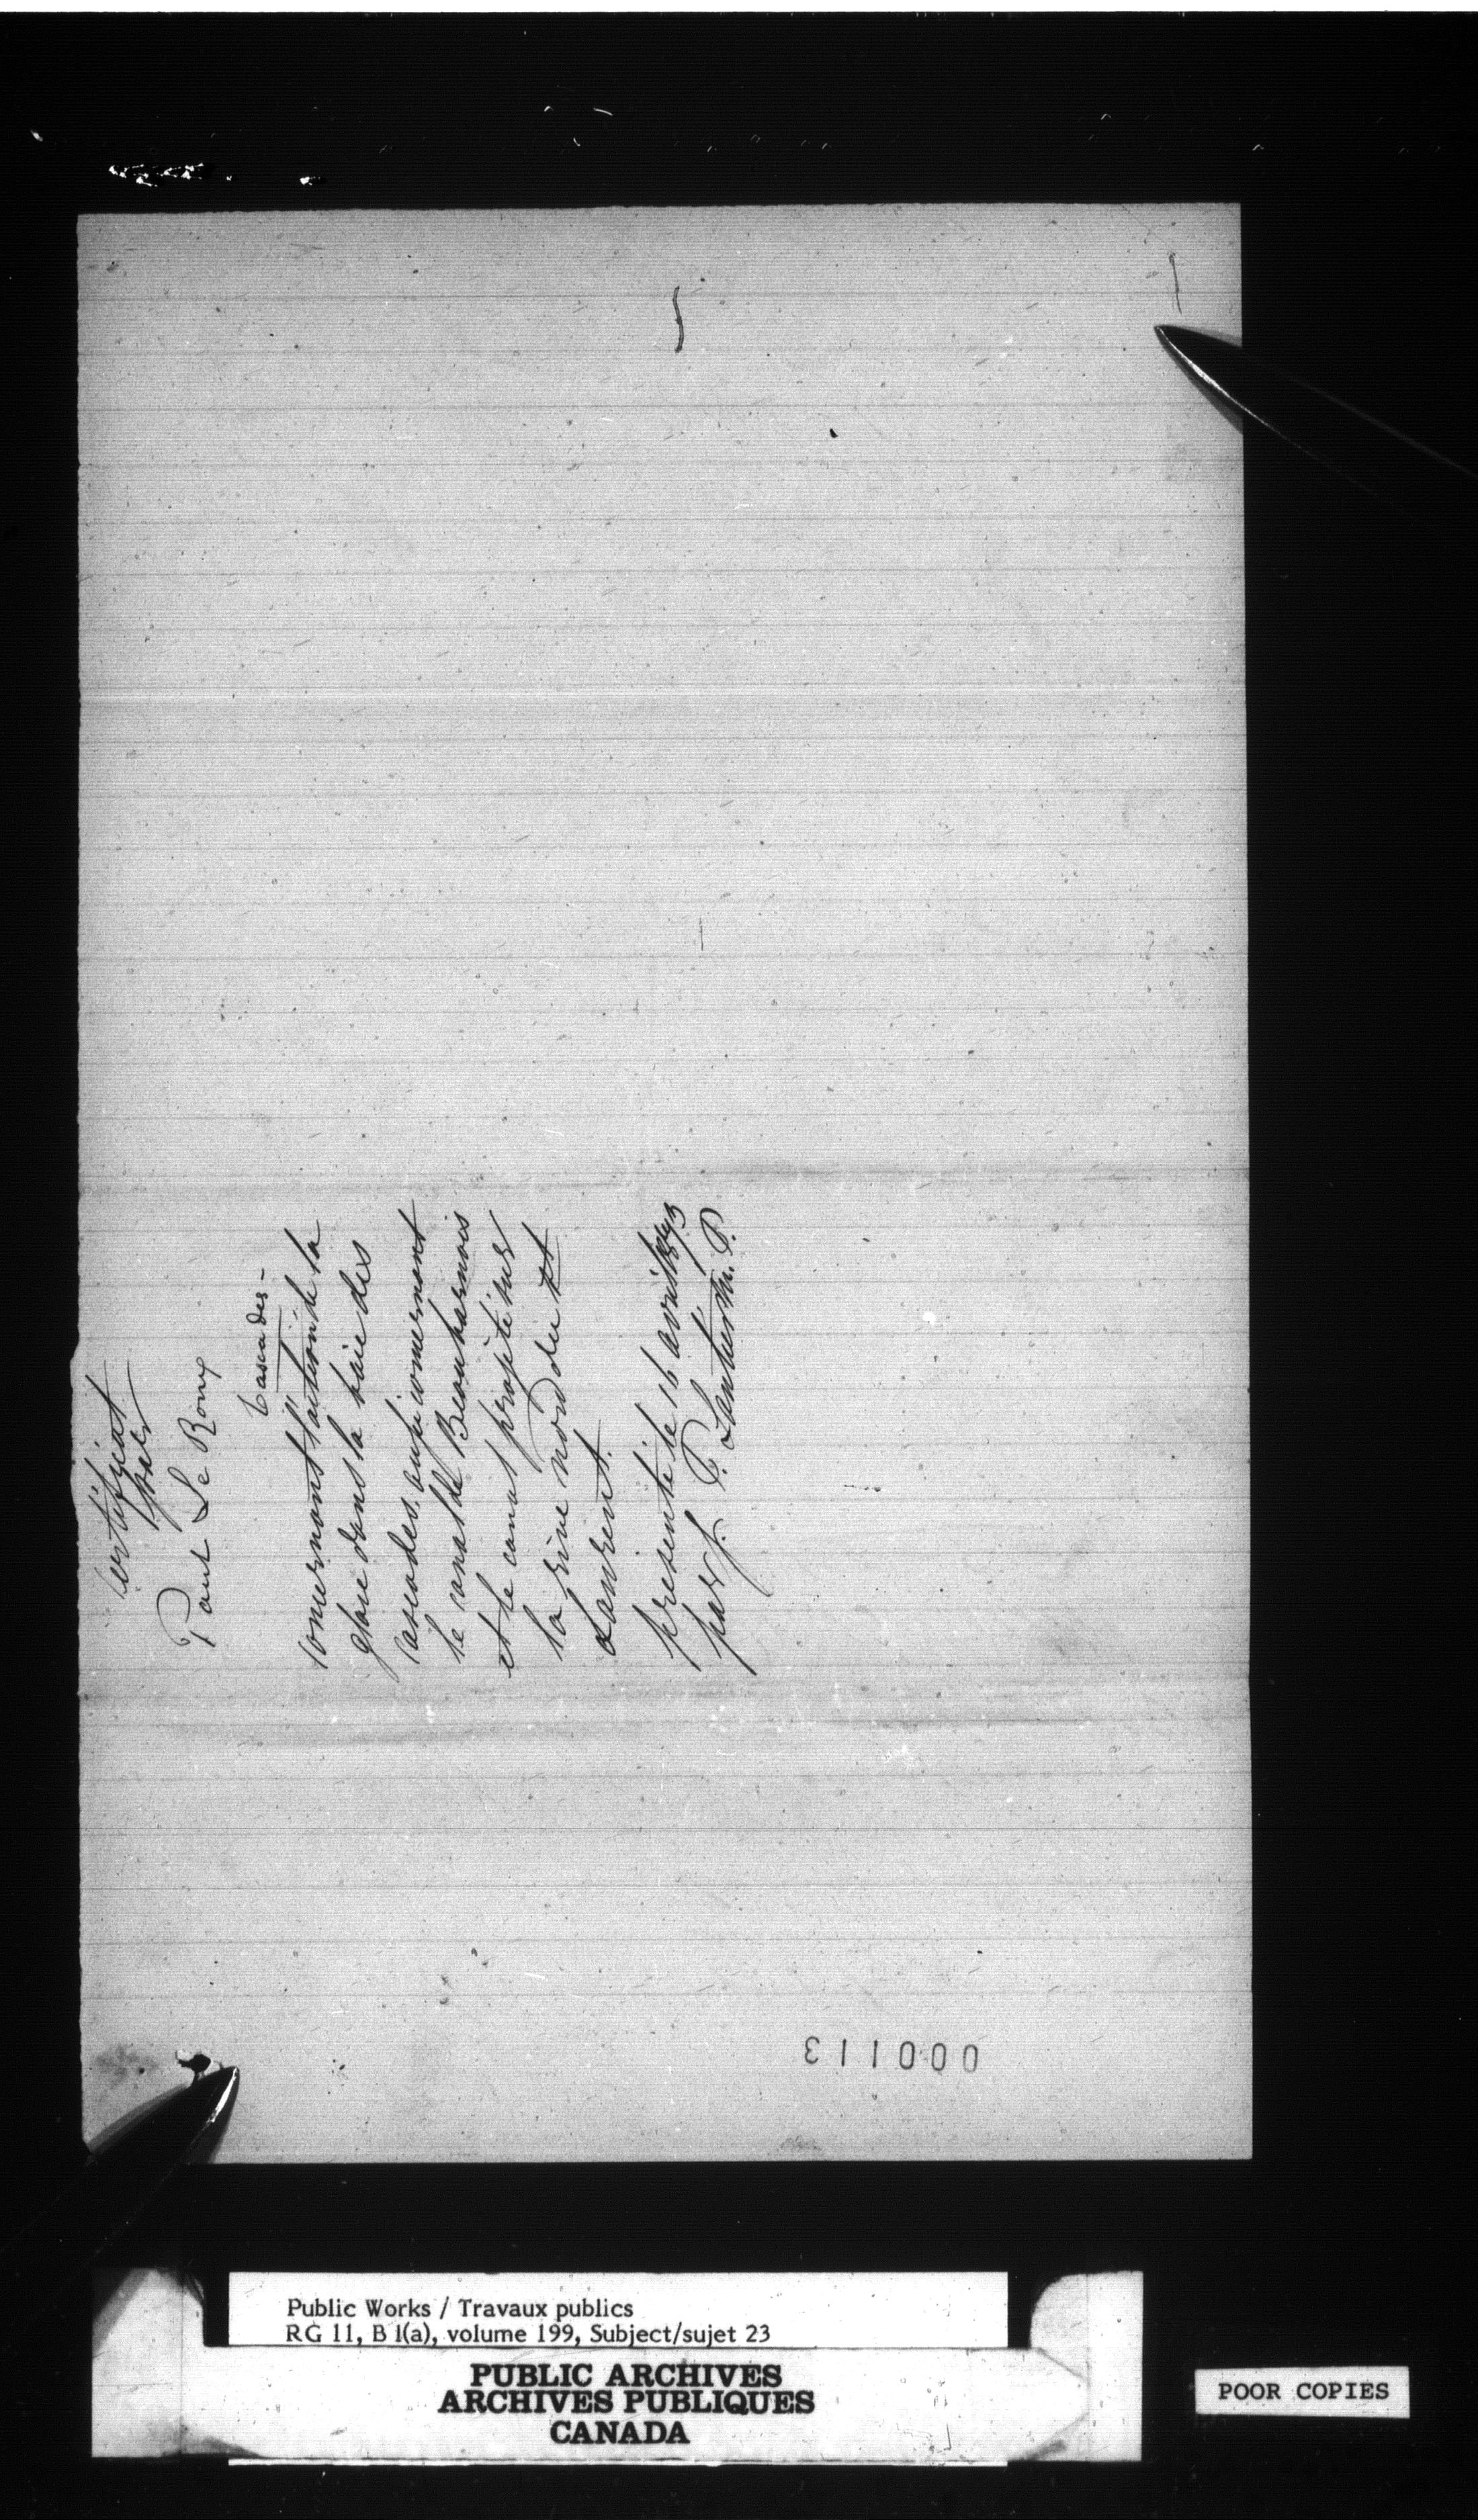 Certificat
par
Paul Le Roux
Cascades –
Concernant l'action de la
glace dans la baie des
Cascades, aussi concernant
le canal de Beauharnois
et le canal projeté sur
la rive nord du St
Laurent.
présenté le 16 avril 1873
par J. P. Lantier M. P.
000113
Public Works / Travaux publics
RG 11, B 1(a), volume 199, Subject/sujet 23
PUBLIC ARCHIVES
ARCHIVES PUBLIQUES
CANADA
POOR COPIES